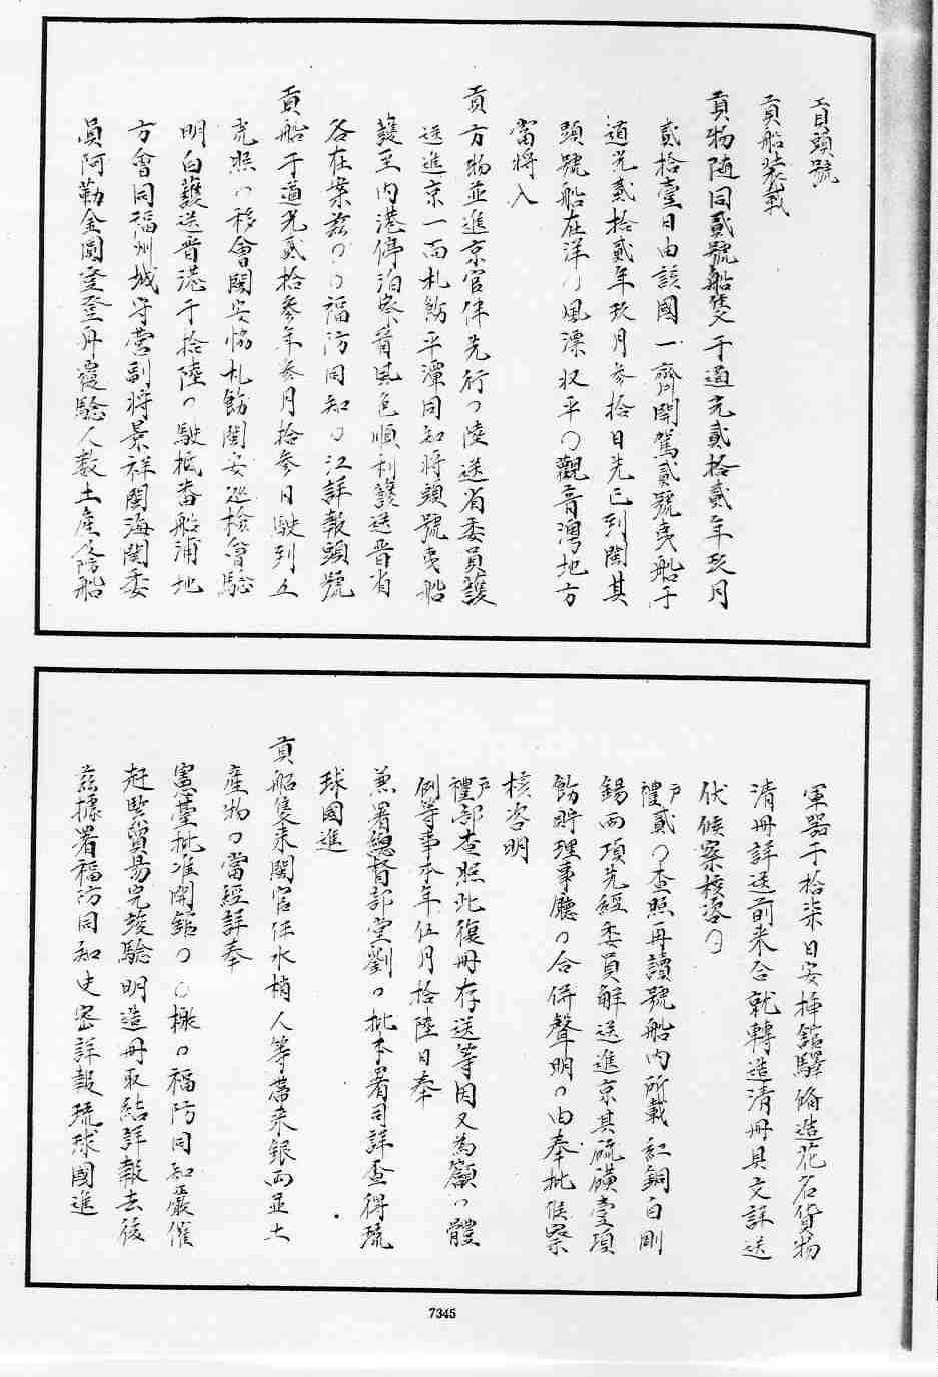 貢頭號
貢船裝載
貢物随同貳號船隻于道光貳拾貳年玖月
貳拾壹日由該國一齊開駕貳號夷船于
道光貳拾貳年玖月參拾日先已到閩其
頭號船在洋〇風漂收平〇觀音灣地方
當將入
貢方物並進京官伴先行〇陸送省委員護
送進京一面札飭平潭同知將頭號夷船
護至内港停泊察看風色順利護送晋省
各在案茲〇〇福防同知〇江詳報頭號
貢船于道光貳拾參年參月拾參日駛到五
虎〇移會閩安協札飭閩安巡檢會驗
明白護送晋港于拾陸〇駛抵番船浦地
方會同福州城守營副將景祥閩海関委
員阿勒金圖登舟覆驗人數土産及防船
軍器于拾柒日安揷舘驛俻造花名貨物
清冊詳送前来合就轉造清冊具文詳送
伏候察核咨〇
禮戸貳〇查照再讀號船内所載紅銅白剛
錫両項先經委員解送進京其硫磺壹項
飭貯理事廳〇合併聲明〇由奉批候察
核咨明
禮戸部查照此復冊存送等因又為籲〇體
例等事本年伍月拾陸日奉
兼署總督部堂劉〇批本署司詳查得琉
球國進
貢船隻来閩官伴水梢人等帯来銀両並土
産物〇當經詳奉
憲薹批准開舘〇〇〇檄〇福防同知嚴催
赶緊貿易完竣驗明造冊取結詳報去後
茲據署福防同知史密詳報琉球國進
7345